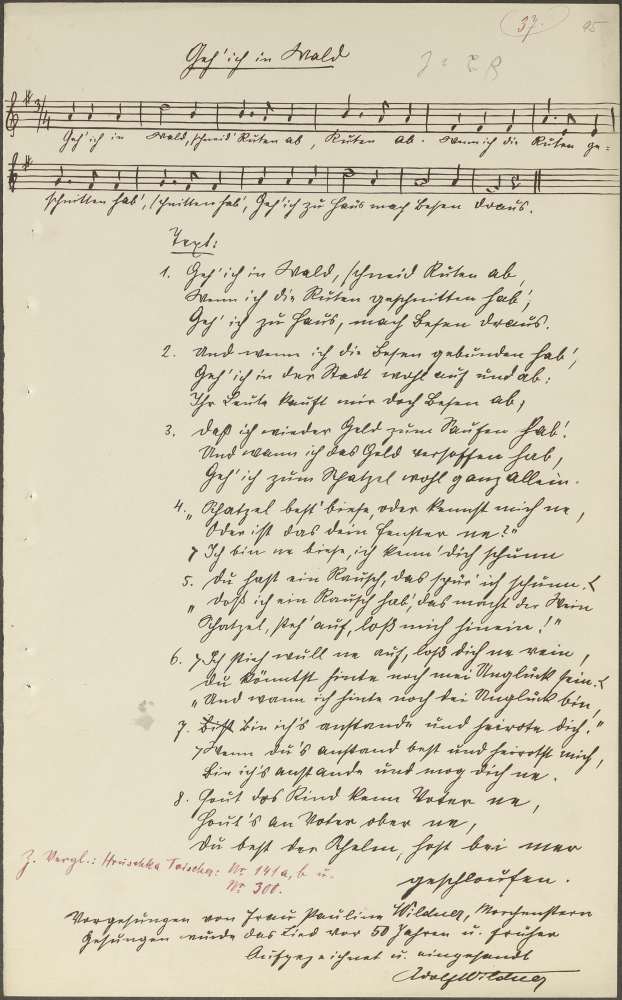 37.
95
Geh' ich in Wald
Geh' ich in Wald, schneid' Ruten ab, Ruten ab. Wenn ich die Ruten ge=
schnitten hab', schnitten hab', Geh' ich zu Haus mach Besen draus.
Text:
1. Geh' ich in Wald, schneid Ruten ab,
Wenn ich die Ruten geschnitten hab',
Geh' ich zu Haus, mach Besen draus.
2. Und wenn ich die Besen gebunden hab',
Geh' ich in der Stadt wohl auf und ab:
Ihr Leute kauft mir doch Besen ab,
3. Daß ich wieder Geld zum Saufen hab'.
Und wann ich das Geld versoffen hab,
Geh' ich zum Schatzel wohl ganz allein.
4. „Schatzel best' biese, oder kennst mich ne,
Oder ist das dein Fenster ne?"
Ich bin ne biese, ich kenn' dich schunn
5. Du hast ein Rausch, das spür' ich schunn.
„Daß ich ein Rausch hab', das macht der Wein
Schatzel, steh' auf, loß mich hinein!"
6. Ich stieh wull ne auf, loß dich ne rein,
Du könntst hinte noch mei Unglück sein.
„Und wann ich hinte noch dei Unglück bin,
7. Bin ich's anstande und heirote dich."
Wenn du's anstand best und heirotst mich,
Bin ich's anstande und mog dich ne.
8. Hout dos Kind kenn Voter ne,
Hout's an Voter ober ne,
Du best der Schelm, host bei mer
geschloufen.
Z. Vergl.: Hruschka Toischer: Nr. 141a, b u.
Nr. 300.
Vorgesungen von Frau Pauline Wildner, Morchenstern
Gesungen wurde das Lied vor 50 Jahren u. früher
Aufgezeichnet u. eingesandt
Adolf Wildner